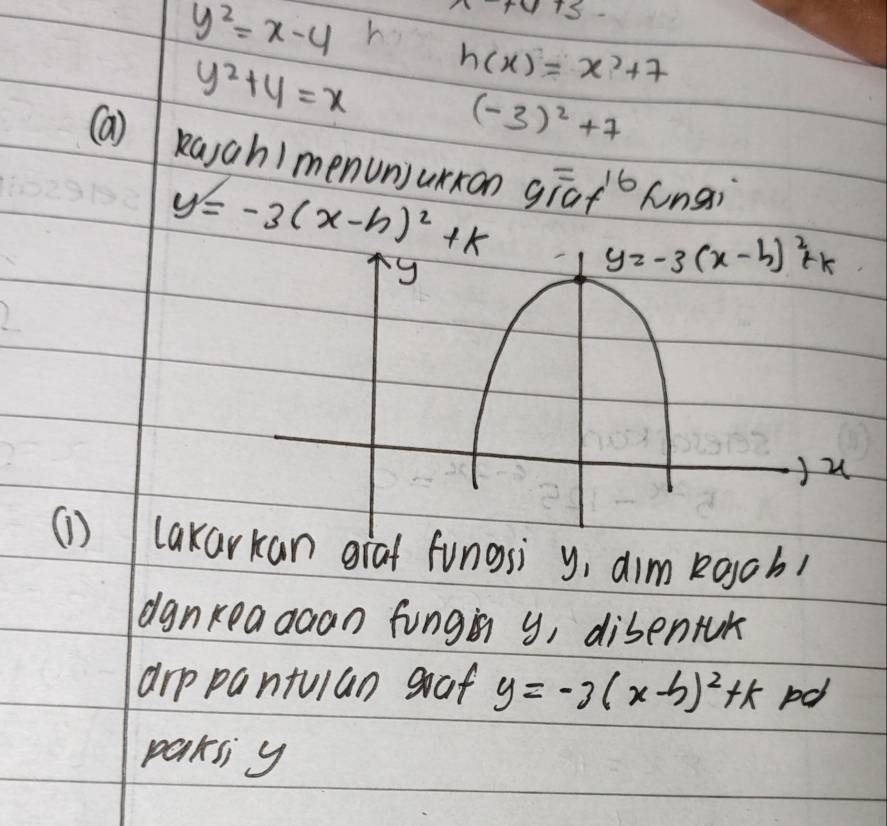 y² = x - 4
h(x) = x² + 7
y² + 4 = x
(-3)² + 7
= 16
(a) Rajah 1 menunjukkan graf fungsi
y = -3(x - h)² + k
y
y = -3(x - h)² + k
x
(i) Lakarkan graf fungsi y, dlm Rajah 1
dgn keadaan fungsi y, dibentuk
drp pantulan graf y = -3(x - h)² + k pd
paksi y